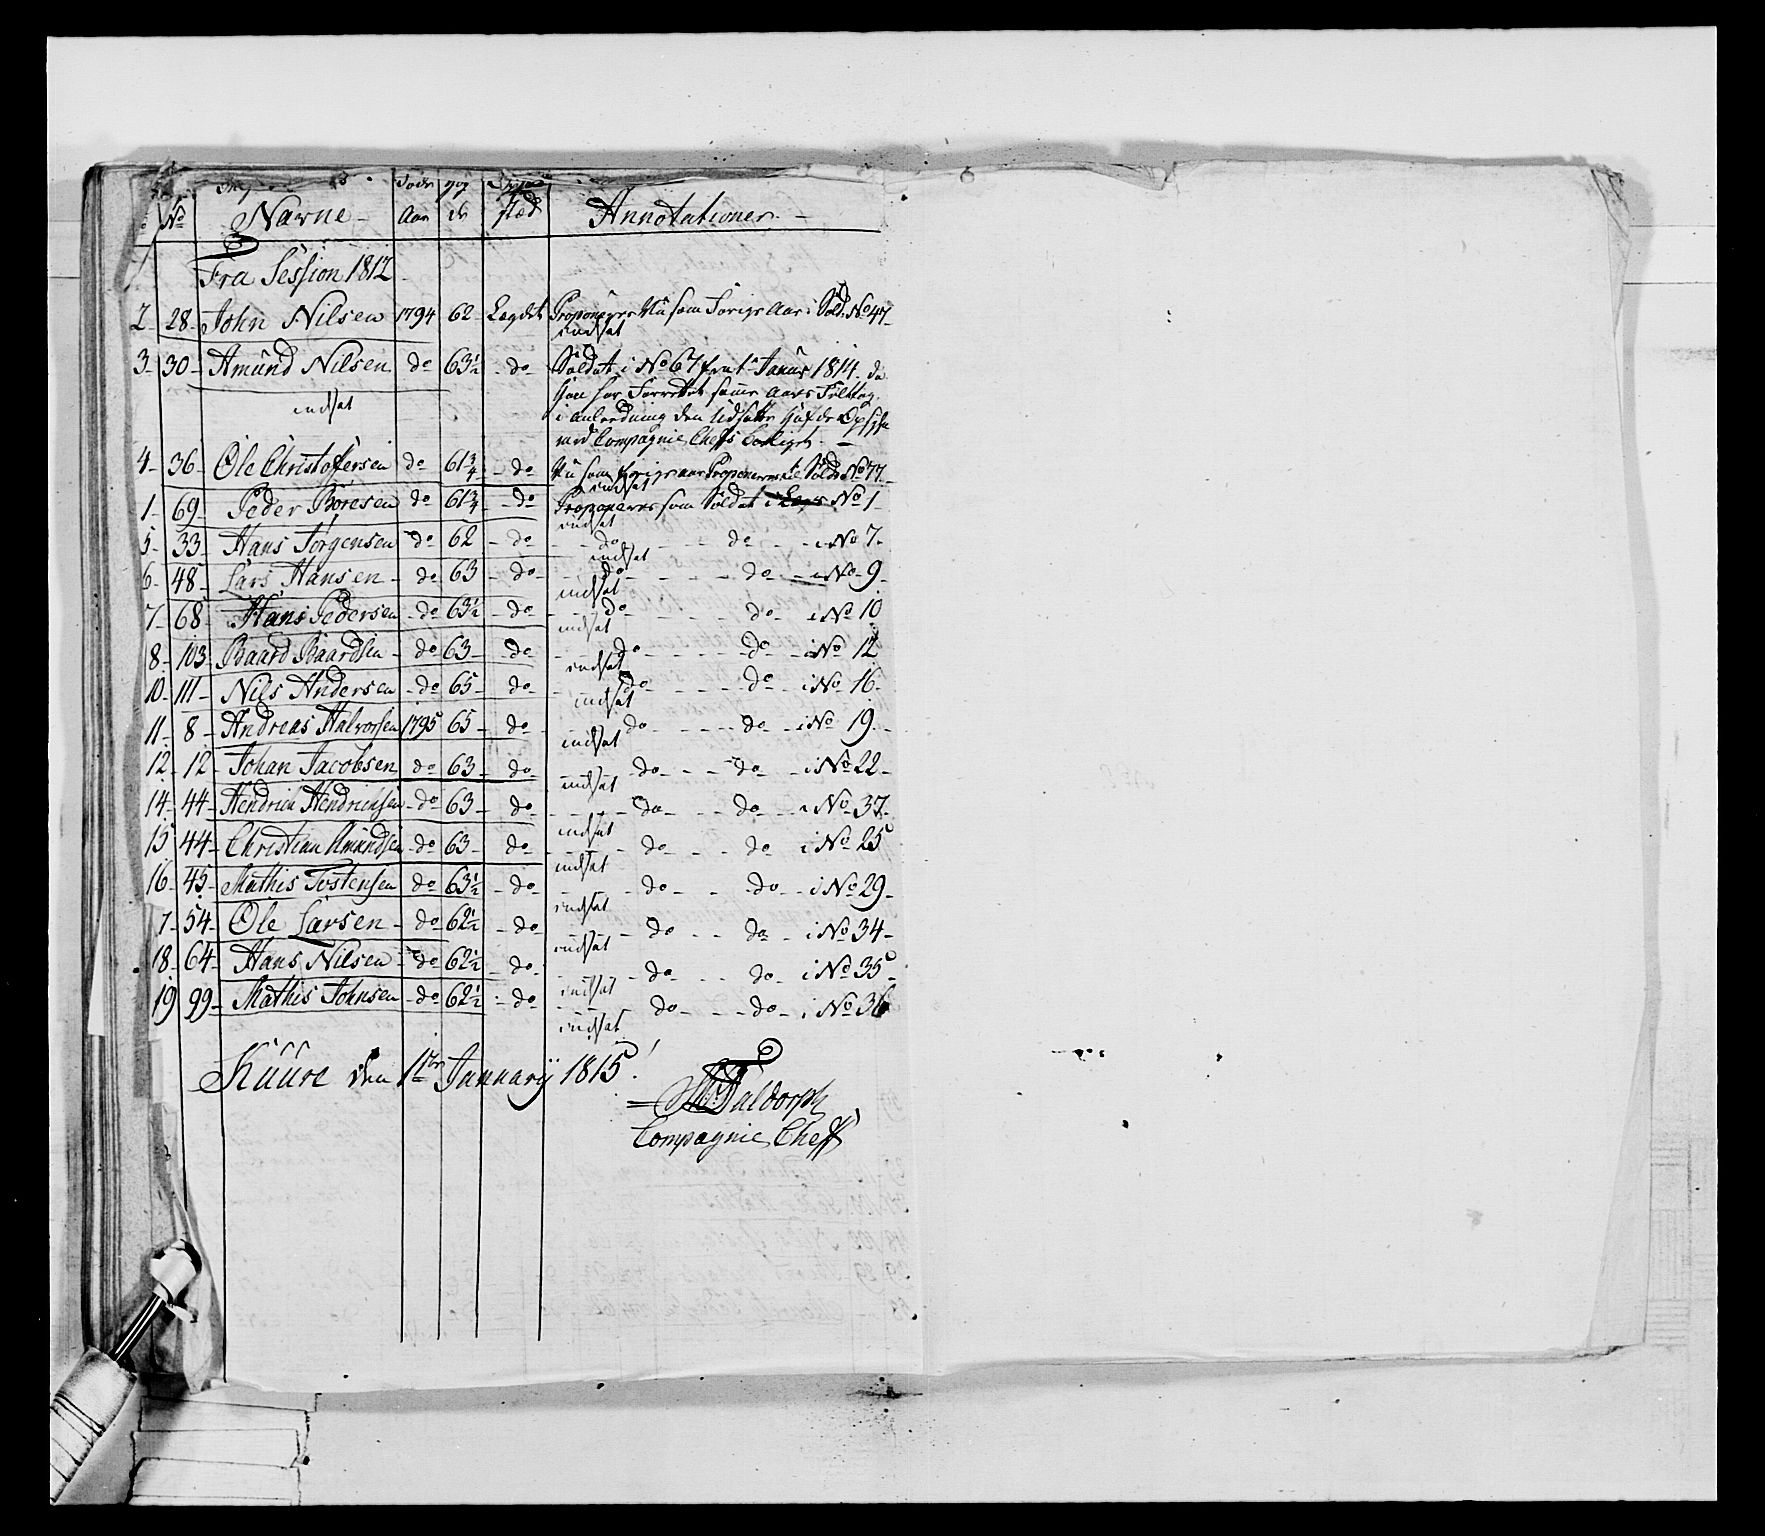 No Navne Aar stæd Annotationer
Fra Session 1812
2 28 John Nilsen 1794 62 Lægdet Proponeres Nu som Forrige Aar i Sold. No 47
indsat
3 30 Amund Nilsen do 63½ do Soldat i No 67 fra 1te Januar 1814. da
han har Forrettet samme Aars Felttog
indsat
i anledning den Udsatte
med Compagnie Chefs
4 36 Ole Christofersen do 61¾ do Nu som forrige aar Proponeres til Sold. No 77
indsat
1 69 Peder Boresen do 61¾ do Proponeres som Soldat i No 1
indsat
5 33 Hans Jørgensen do 62 do do do i No 7
indsat
6 48 Lars Hansen do 63 do do do i No 9
indsat
7 68 Hans Pedersen do 63½ do do do i No 10
indsat
8 103 Baard Baardsen do 63 do do do i No 12
indsat
10 111 Nils Andersen do 65 do do do i No 16
indsat
11 8 Andreas Halvorsen 1795 65 do do do i No 19
indsat
12 12 Johan Jacobsen do 63 do do do i No 22
indsat
14 44 Hendrich Hendrichsen do 63 do do do i No 37
indsat
15 44 Christian Amundsen do 63 do do do i No 25
indsat
16 45 Mathis Tostensen do 63½ do do do i No 29
indsat
7 54 Ole Larsen do 62½ do do do i No 34
indsat
18 64 Hans Nilsen do 62½ do do do i No 35
indsat
19 99 Mathis Johnsen do 62½ do do do i No 36
indsat
Kuure den 1te Januarÿ 1815
Faldorph
Compagnie Cheff